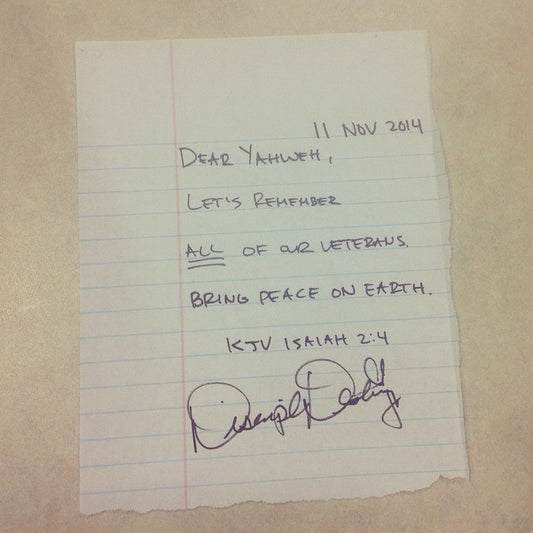 11 NOV 2014
DEAR YAHWEH,
LET'S REMEMBER
ALL OF OUR VETERANS.
BRING PEACE ON EARTH.
KJV ISAIAH 2:4
Disciple